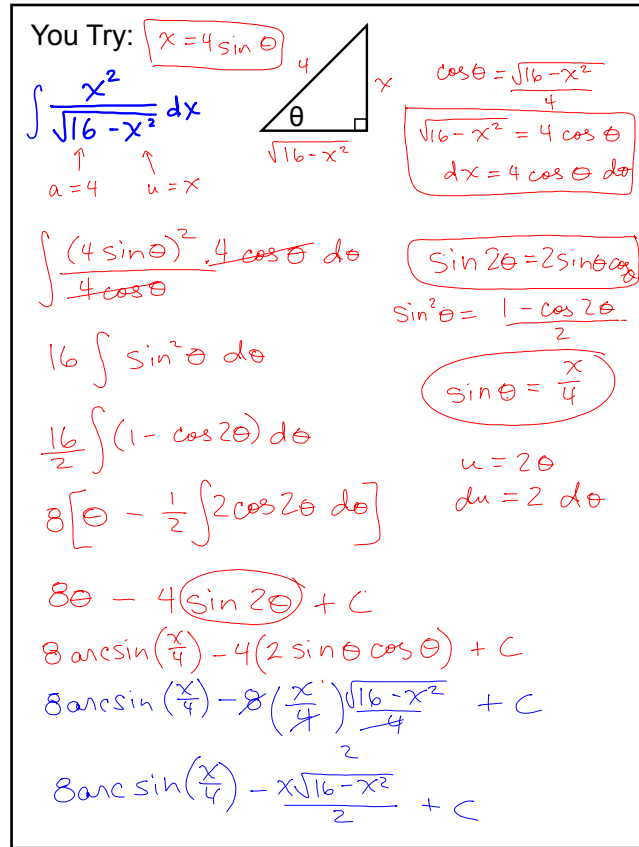 You Try: x = 4 sin θ
∫ x²/√(16 - x²) dx
a = 4 u = x
4
x
θ
√(16 - x²)
cos θ = √(16 - x²)/4
√(16 - x²) = 4 cos θ
dx = 4 cos θ dθ
∫ (4 sin θ)²/(4 cos θ) · 4 cos θ dθ
sin 2θ = 2 sin θ cos θ
sin² θ = (1 - cos 2θ)/2
16 ∫ sin² θ dθ
sin θ = x/4
16/2 ∫ (1 - cos 2θ) dθ
u = 2θ
du = 2 dθ
8[θ - 1/2 ∫ 2 cos 2θ dθ]
8θ - 4 sin 2θ + C
8 arcsin(x/4) - 4(2 sin θ cos θ) + C
8 arcsin(x/4) - 8(x/4) √(16 - x²)/4 + C
2
8 arc sin(x/4) - x√(16 - x²)/2 + C